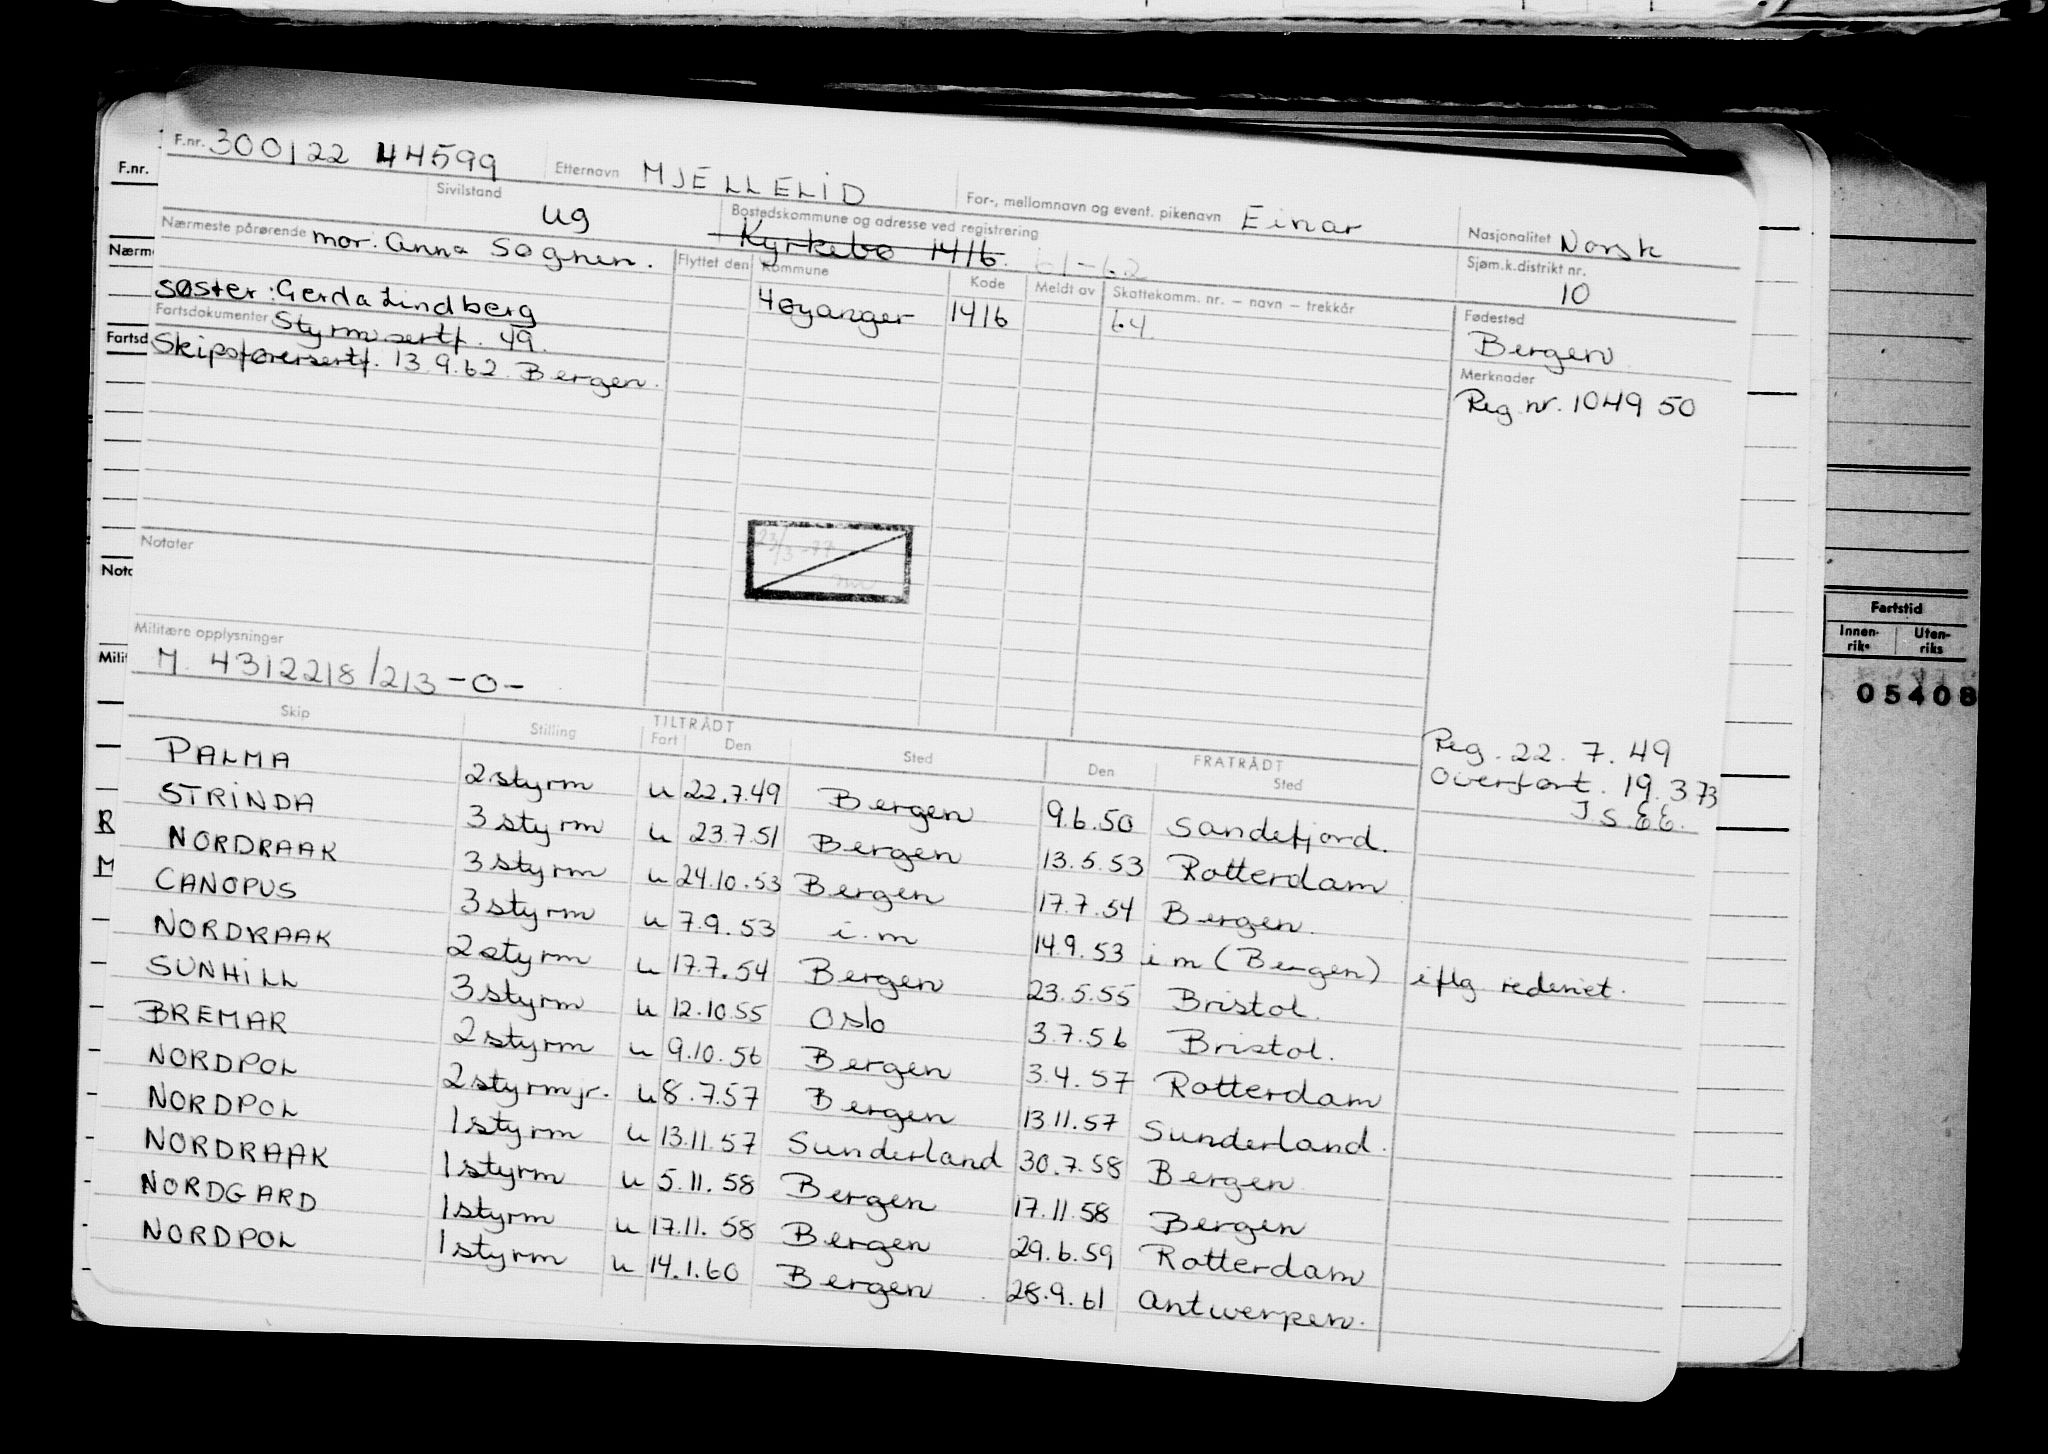 F.nr. 300122 44599 Etternavn MJELLELID For-, mellomnavn og event. pikenavn Einar Nasjonalitet Norsk
Sivilstand ug Bostedskommune og adresse ved registrering Kyrkebø 1416. 61-62 Sjøm.k.distrikt nr. 10
Nærmeste pårørende mor: Anna Sognen. Flyttet den Kommune Kode Meldt av Skattekomm. nr. – navn – trekkår
søster: Gerda Lindberg Høyanger 1416 64. Fødested Bergen
Fartsdokumenter Styrm sertf. 49.
Skipsførersertf. 13.9.62 Bergen.
Merknader
Reg nr. 1049 50
23/3-77
Notater
Militære opplysninger
M. 4312218/213-0-
Reg. 22.7.49
Overført. 19.3 73
Skip Stilling TILTRÅDT Fart Den Sted FRATRÅDT Den Sted
PALMA 2 styrm u 22.7.49 Bergen 9.6.50 Sandefjord.
STRINDA 3 styrm u 23.7.51 Bergen 13.5.53 Rotterdam
NORDRAAK 3 styrm u 24.10.53 Bergen 17.7.54 Bergen.
CANOPUS 3 styrm u 7.9.53 i.m 14.9.53 i m (Bergen) iflg rederiet.
NORDRAAK 2 styrm u 17.7.54 Bergen 23.5.55 Bristol.
SUNHILL 3 styrm u 12.10.55 Oslo 3.7.56 Bristol.
BREMAR 2 styrm u 9.10.56 Bergen 3.4.57 Rotterdam
NORDPOL 2 styrm jr. u 8.7.57 Bergen 13.11.57 Sunderland.
NORDPOL 1 styrm u 13.11.57 Sunderland 30.7.58 Bergen
NORDRAAK 1 styrm u 5.11.58 Bergen 17.11.58 Bergen
NORDGARD 1 styrm u 17.11.58 Bergen 29.6.59 Rotterdam
NORDPOL 1 styrm u 14.1.60 Bergen 28.9.61 Antwerpen.
F.nr.
Fartstid
Innen-riks Uten-riks
05408